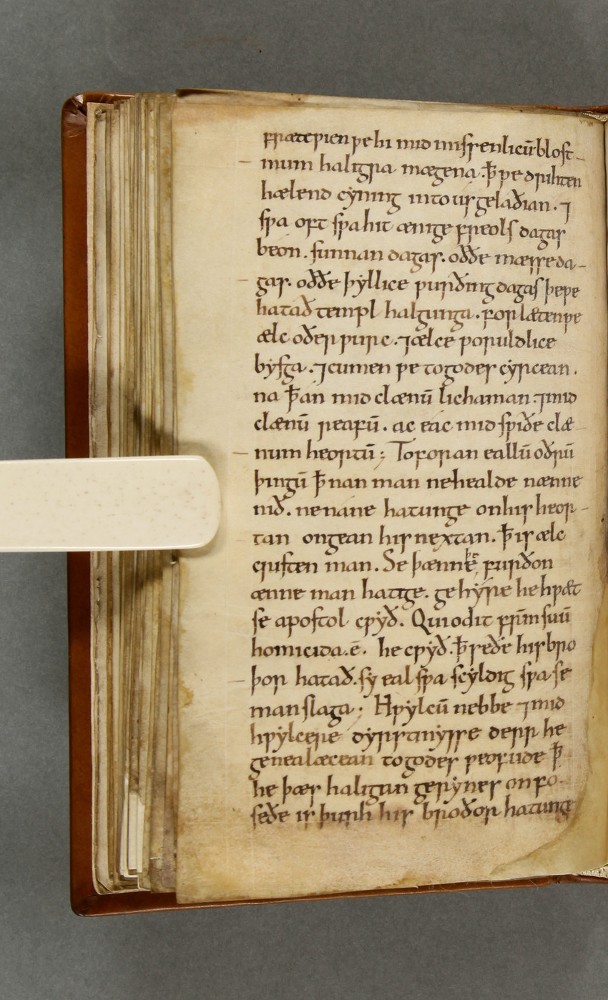 frætewien we hi mid unasecgenlicū blost-
mum haligra mægena. ꝥ we drihten
hælend cyning in to us gelaðian. ⁊
swa oft swa hit ænige freols dagas
beon. sunnan dagas. oððe mæsse da-
gas. oððe þyllice wurðing dagas þe we
hatað templ halgunga. forlæten we
ælc oðer weorc. ⁊ælce woruldlice
bysga. ⁊cumen we to godes cyrcean.
na ꝥ an mid clænū lichaman ⁊mid
clænū reafū. ac eac mid swiðe clæ
num heortū; Toforan eallū oðrū
þingū ꝥ nan man ne healde nænne
nið. ne nane hatunge on his heor-
tan ongean his nextan. ꝥ is ælc
cristen man. Se þænne furðon
ænne man hatige. gehyre he hwæt
se apostol cwyð. Qui odit frīm suū
homicida .ē. he cwyð. ꝥ se ðe his bro
þor hatað. sy eal swa scyldig swa se
manslaga; Hwylcū nebbe ⁊mid
hwylcere dyrstinysse derr he
genealæcean to godes weofude ꝥ
he þær haligan gerynes onfo.
se ðe is þurh his broðor hatunge